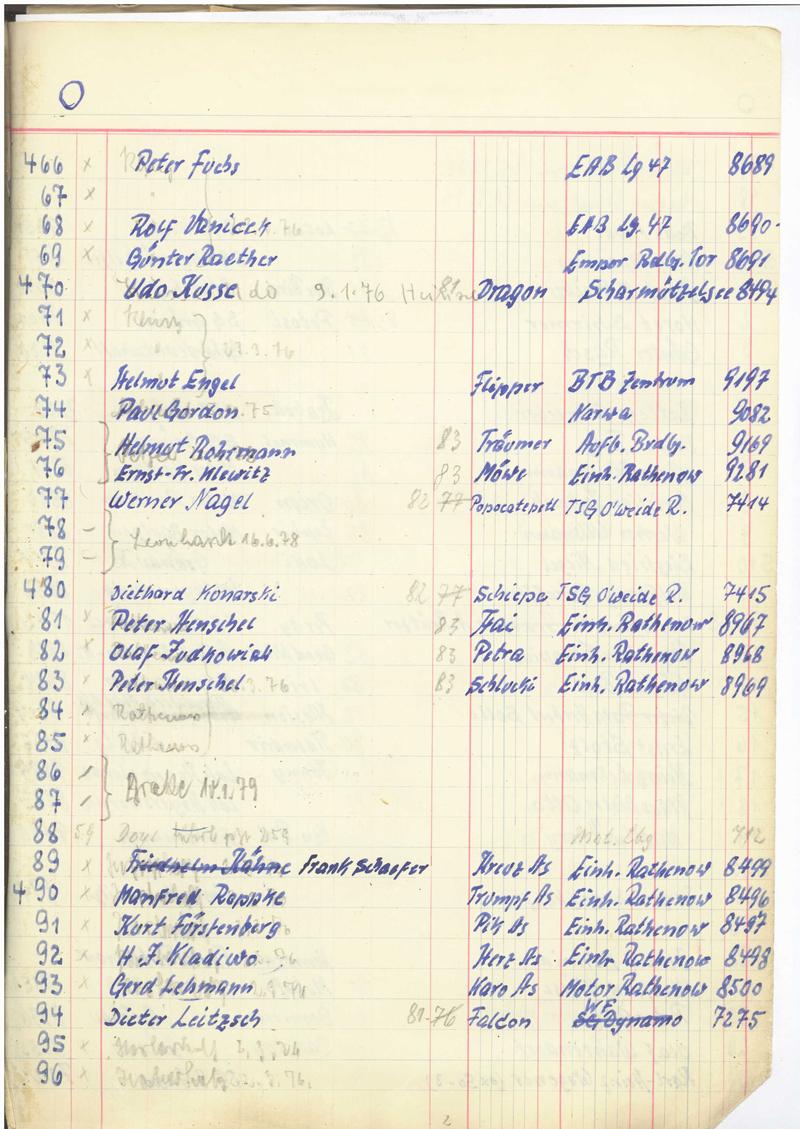 O
466 x Peter Fuchs EAB Lg 47 8689
67 x
68 x Rolf Vanicek EAB Lg. 47 8690
69 x Günter Raether Empor Brdbg. Tor 8691
470 Udo Kusse 9.1.76 81 Dragon Scharmützelsee 8494
71 x
72 x 23.3.76
73 x Helmut Engel Flipper BTB Zentrum 9197
74 Paul Gordon 75 Narwa 9082
75 Helmut Rohrmann 83 Träumer Aufb. Brdbg. 9169
76 Ernst-Fr. Klewitz 83 Möwe Einh. Rathenow 9281
77 Werner Nagel 82 77 Popocatepetl TSG O'weide R. 7414
78 – Leonhardt 16.6.78
79 –
480 Diethard Konarski 82 77 Schiepa TSG O'weide R. 7415
81 x Peter Henschel 83 Hai Einh. Rathenow 8967
82 x Olaf Judkowiak 83 Petra Einh. Rathenow 8968
83 x Peter Henschel 3.76 83 Schlucki Einh. Rathenow 8969
84 x Rathenow
85 x Rathenow
86 Grake 18.1.79
87
88 59 712
89 x Friedhelm Kähne Frank Schaefer Kreuz As Einh. Rathenow 8499
490 x Manfred Reppke Trumpf As Einh. Rathenow 8496
91 x Kurt Förstenberg Pik As Einh. Rathenow 8497
92 x H. J. Kladiwo Herz As Einh. Rathenow 8498
93 x Gerd Lehmann Karo As Motor Rathenow 8500
94 Dieter Leitzsch 81-76 Falcon WF Dynamo 7275
95 x
96 x 76.
2